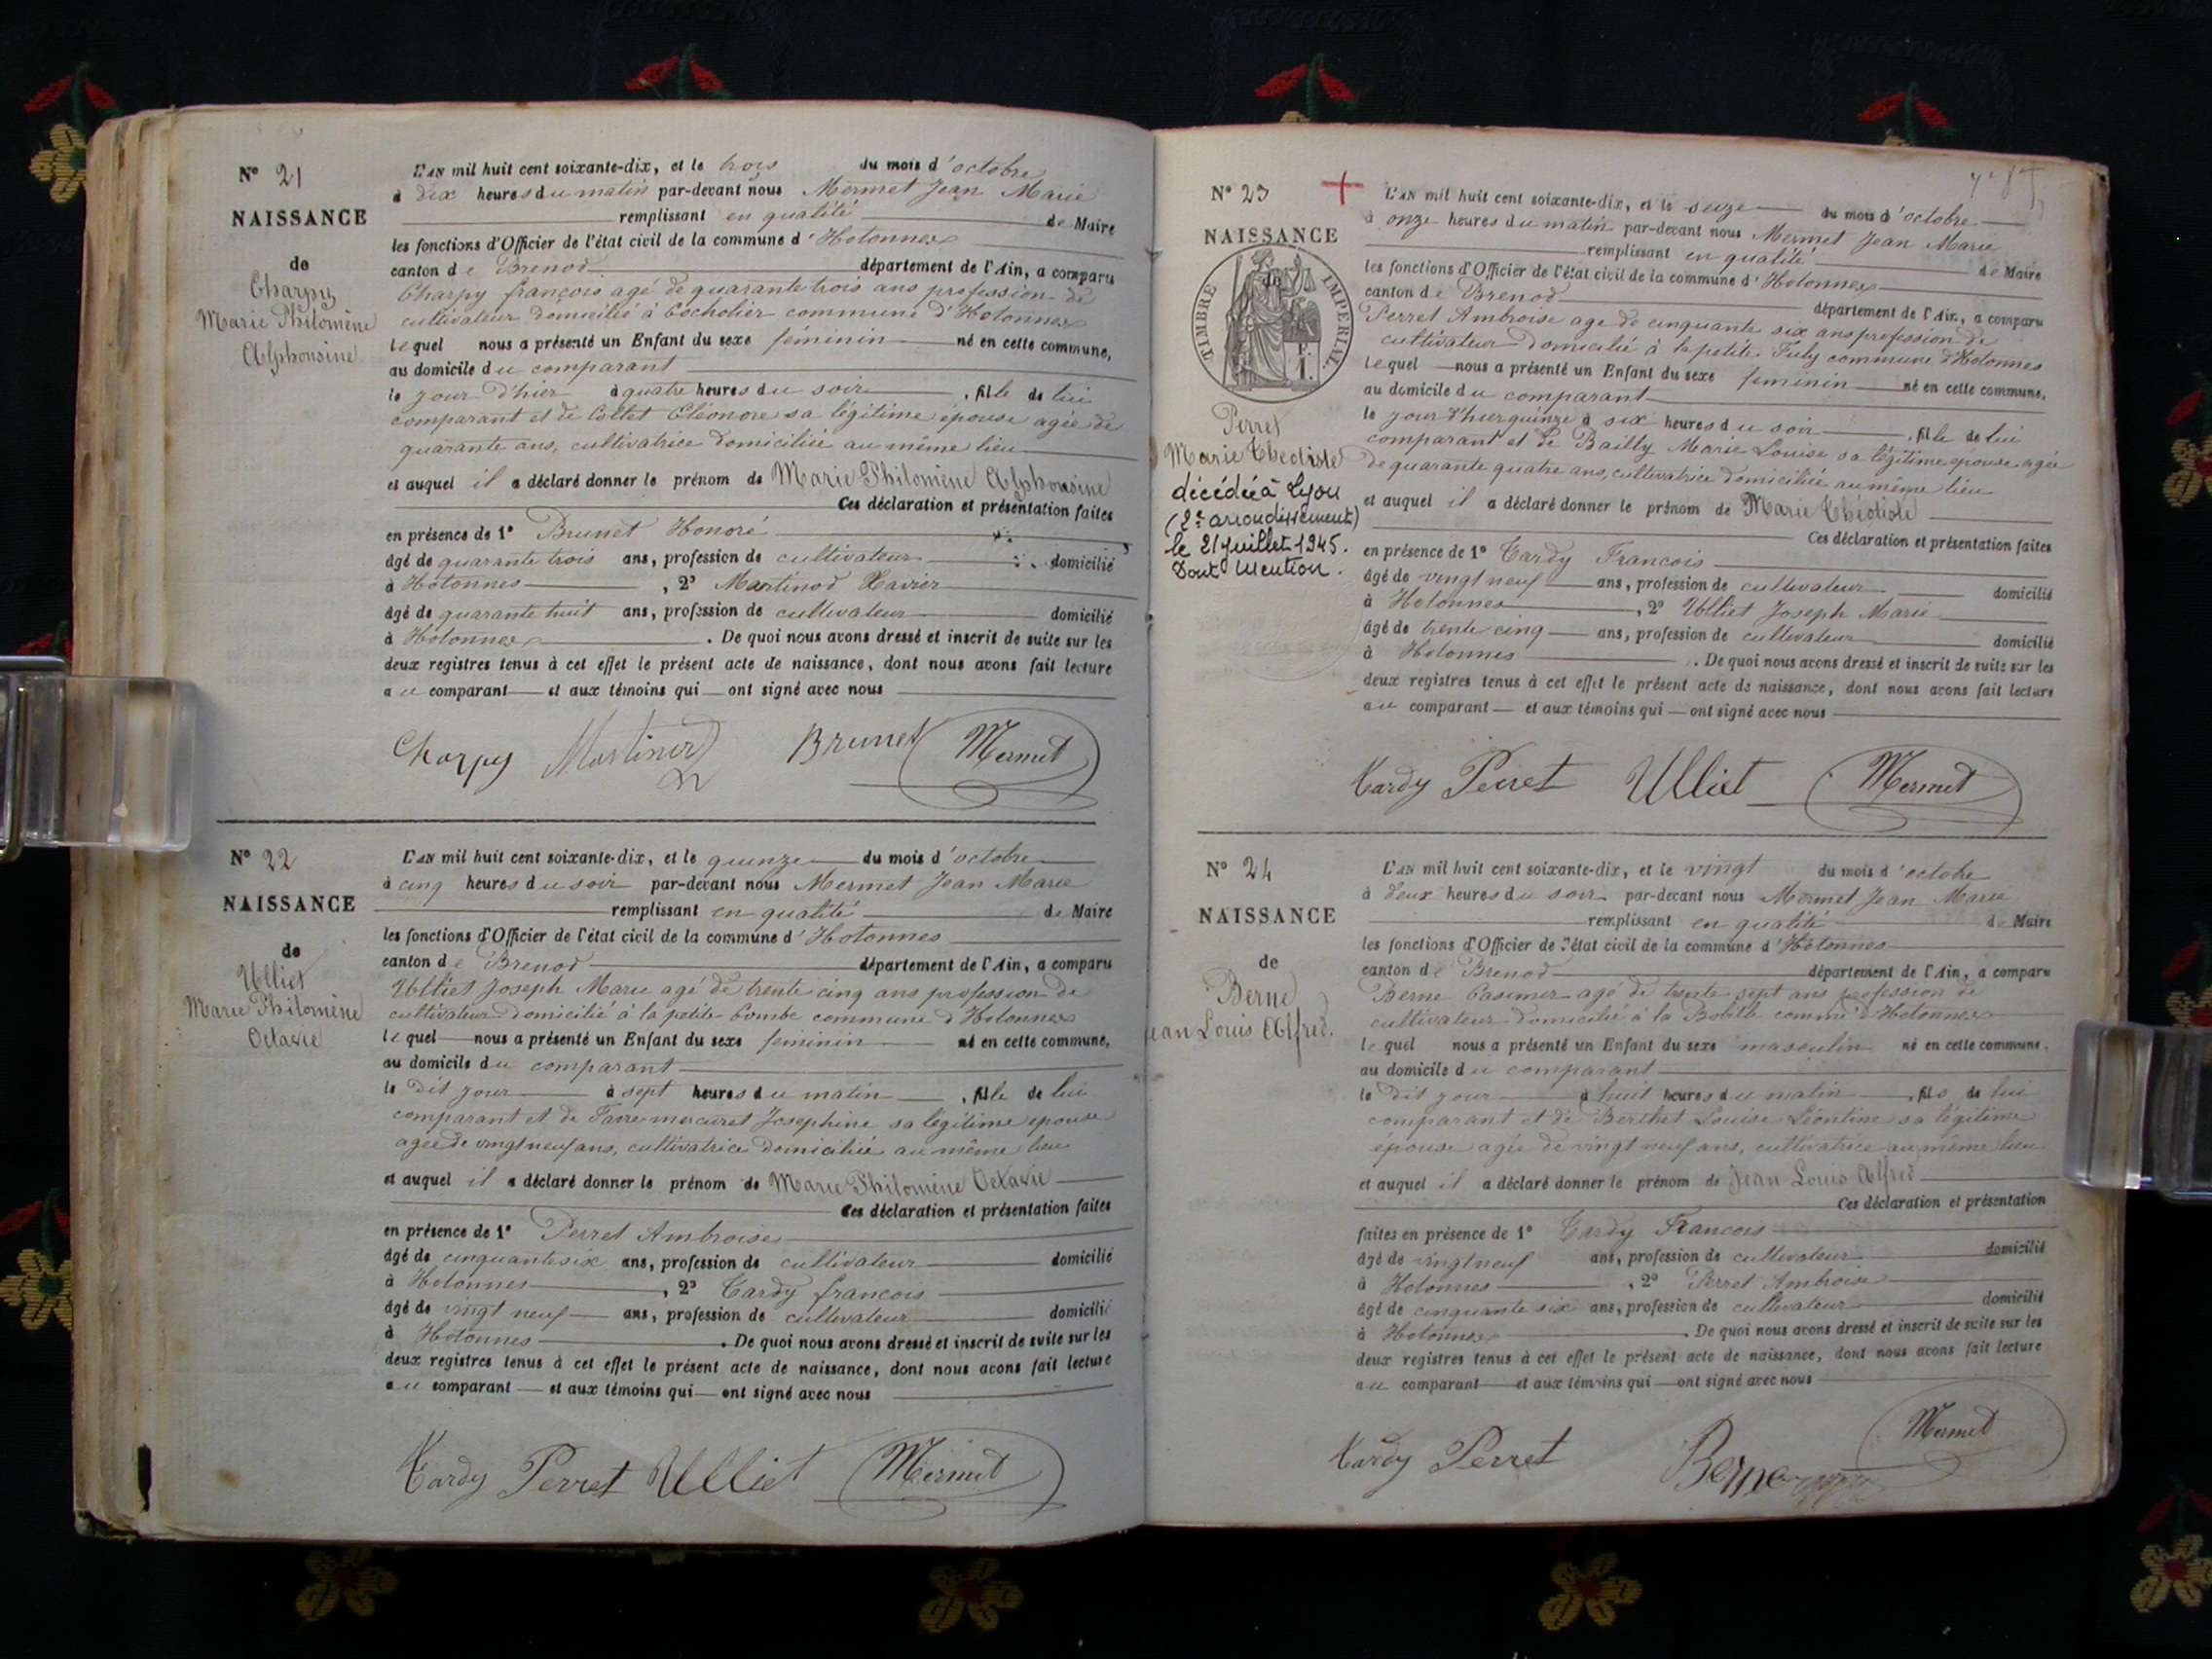 N° 21
NAISSANCE
de
Charpy
Marie Philomène
Alphonsine
L'AN mil huit cent soixante-dix, et le trois du mois d'octobre
à dix heures du matin par-devant nous Mermet Jean Marie
remplissant en qualité de Maire
les fonctions d'Officier de l'état civil de la commune d'Hotonnes
canton de Brenod département de l'Ain, a comparu
Charpy françois agé de quarante trois ans profession de
cultivateur domicilié à Cocholier commune d'Hotonnes
lequel nous a présenté un Enfant du sexe féminin né en cette commune,
au domicile du comparant
le jour d'hier à quatre heures du soir, fille de lui
comparant et de Collet Eléonore sa légitime épouse agée de
quarante ans, cultivatrice domiciliée au même lieu
et auquel il a déclaré donner le prénom de Marie Philomène Alphonsine
Ces déclaration et présentation faites
en présence de 1° Brunet Honoré
âgé de quarante trois ans, profession de cultivateur domicilié
à Hotonnes, 2° Martinod Xavier
âgé de quarante huit ans, profession de cultivateur domicilié
à Hotonnes. De quoi nous avons dressé et inscrit de suite sur les
deux registres tenus à cet effet le présent acte de naissance, dont nous avons fait lecture
au comparant et aux témoins qui ont signé avec nous
Charpy Martinod Brunet Mermet
N° 22
NAISSANCE
de
Ulliet
Marie Philomène
Octavie
L'AN mil huit cent soixante-dix, et le quinze du mois d'octobre
à cinq heures du soir par-devant nous Mermet Jean Marie
remplissant en qualité de Maire
les fonctions d'Officier de l'état civil de la commune d'Hotonnes
canton de Brenod département de l'Ain, a comparu
Ulliet Joseph Marie agé de trente cinq ans profession de
cultivateur domicilié à la petite Combe commune d'Hotonnes
lequel nous a présenté un Enfant du sexe féminin né en cette commune,
au domicile du comparant
le dit jour à sept heures du matin, fille de lui
comparant et de Favre-mercuret Josephine sa légitime épouse
agée de vingt neuf ans, cultivatrice domiciliée au même lieu
et auquel il a déclaré donner le prénom de Marie Philomène Octavie
Ces déclaration et présentation faites
en présence de 1° Perret Ambroise
âgé de cinquante six ans, profession de cultivateur domicilié
à Hotonnes, 2° Tardy françois
âgé de vingt neuf ans, profession de cultivateur domicilié
à Hotonnes. De quoi nous avons dressé et inscrit de suite sur les
deux registres tenus à cet effet le présent acte de naissance, dont nous avons fait lecture
au comparant et aux témoins qui ont signé avec nous
Tardy Perret Ulliet Mermet
N° 23
NAISSANCE
de
TIMBRE IMPERIAL
Perret
Marie Thédiste
décédée à Lyon
(2e arrondissement)
le 21 juillet 1945.
Dont Mention.
L'AN mil huit cent soixante-dix, et le seize du mois d'octobre
à onze heures du matin par-devant nous Mermet Jean Marie
remplissant en qualité de Maire
les fonctions d'Officier de l'état civil de la commune d'Hotonnes
canton de Brenod département de l'Ain, a comparu
Perret Ambroise agé de cinquante six ans profession de
cultivateur domicilié à la petite commune d'Hotonnes
lequel nous a présenté un Enfant du sexe féminin né en cette commune,
au domicile du comparant
le jour d'hier quinze à six heures du soir, fille de lui
comparant et de Bailly Marie Louise sa légitime épouse agée
de quarante quatre ans, cultivatrice domiciliée au même lieu
et auquel il a déclaré donner le prénom de Marie Thédiste
Ces déclaration et présentation faites
en présence de 1° Tardy Francois
âgé de vingt neuf ans, profession de cultivateur domicilié
à Hotonnes, 2° Ulliet Joseph Marie
âgé de trente cinq ans, profession de cultivateur domicilié
à Hotonnes. De quoi nous avons dressé et inscrit de suite sur les
deux registres tenus à cet effet le présent acte de naissance, dont nous avons fait lecture
au comparant et aux témoins qui ont signé avec nous
Tardy Perret Ulliet Mermet
N° 24
NAISSANCE
de
Berne
Jean Louis Alfred.
L'AN mil huit cent soixante-dix, et le vingt du mois d'octobre
à deux heures du soir par-devant nous Mermet Jean Marie
remplissant en qualité de Maire
les fonctions d'Officier de l'état civil de la commune d'Hotonnes
canton de Brenod département de l'Ain, a comparu
Berne Casimer agé de trente sept ans profession de
cultivateur domicilié à la commune d'Hotonnes
lequel nous a présenté un Enfant du sexe masculin né en cette commune,
au domicile du comparant
le dit jour à huit heures du matin, fils de lui
comparant et de Berthet Louise Léontine sa légitime
épouse agée de vingt neuf ans, cultivatrice au même lieu
et auquel il a déclaré donner le prénom de Jean Louis Alfred
Ces déclaration et présentation
faites en présence de 1° Tardy Francois
âgé de vingt neuf ans, profession de cultivateur domicilié
à Hotonnes, 2° Perret Ambroise
âgé de cinquante six ans, profession de cultivateur domicilié
à Hotonnes. De quoi nous avons dressé et inscrit de suite sur les
deux registres tenus à cet effet le présent acte de naissance, dont nous avons fait lecture
au comparant et aux témoins qui ont signé avec nous
Tardy Perret Berne Mermet